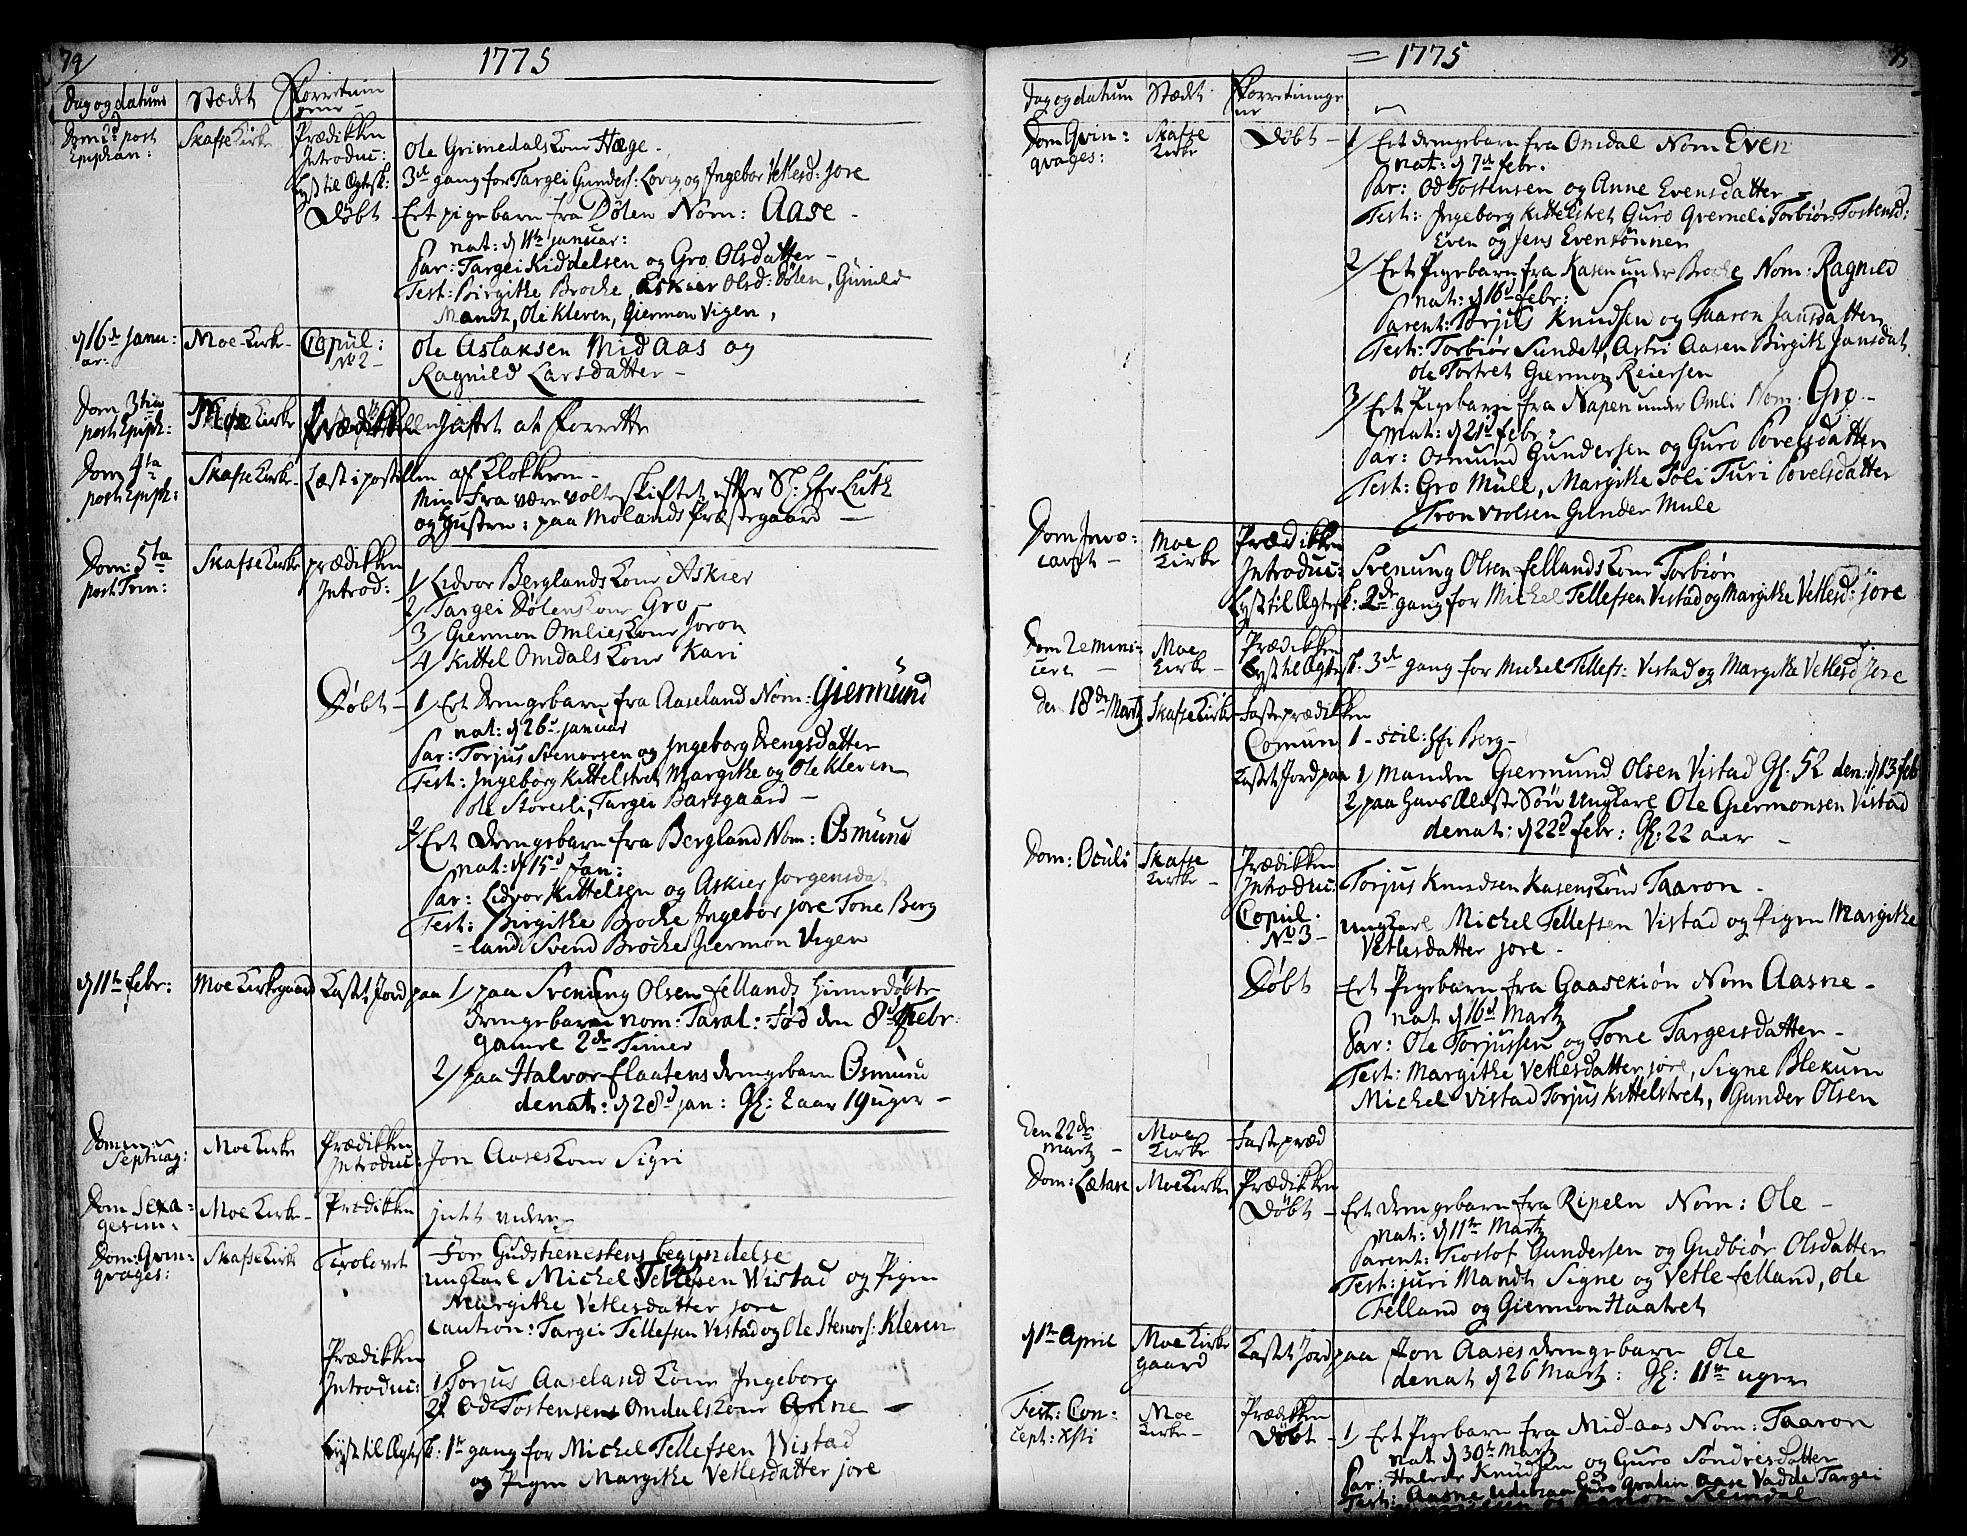 74
1775
Dag og datum Stædet Forretningerne
Dom 2d post Epiphan: Skafse Kirke Prædikken
Introduc: Ole Grimedals Kone Hæge
Lyst til Ægtesk: 3de gang for Targei Gunders: Lovig og Ingebor Vetlesd: jore
Døbt Et pigebarn fra Dölen Nom: Aase
nat: d 11te januar:
Par: Targei Kiddelsen og Gro Olsdatter
Test: Birgithe Brocke, Askier Olsd: Dölen, Gunild
Mandt, Ole Kleven, Giermon Vigen,
d 16de Januar: Moe Kirke Copul: No 2 Ole Aslaksen Mid Aas og
Ragnild Larsdatter
Dom 3tia post Epiph: Moe Kirke Prædikken intet at Forrette
Dom 4ta post Epiph: Skafse Kirke Læst i postillen af Klokken
min Fra være volte skiftet efter Sl: Hr Luth
og Hustru: paa Molands Præstegaard
Dom: 5ta post Trin: Skafse Kirke prædikken
Introd: 1/ Lidvor Berglands Kone Askier
2/ Targei Dölens Kone Gro
3/ Giermon Omlies Kone Joron
4/ Kittel Omdals Kone Kari
Döbt 1/ Et Drengebarn fra Aaseland Nom: Giermund
nat: d 26de januar
Par: Torjus Stenorsen og Ingeborg Drengsdatter
Test: Ingeborg Kittelstret Margithe og Ole Kleven
Ole Storesli, Targei Barsgaard
2/ Et Drengebarn fra Bergland Nom: Osmund
nat: d 15d Jan:
Par: Lidvor Kittelsen og Askier Jorgensdat
Test: Birgithe Brocke Ingebor jore Tone Berg
=land Svend Brocke Giermon Vigen
d 11te febr: Moe Kirkegaard Kastet Jord paa 1/ paa Svenung Olsen fellands hiemedöbte
drengebarn nom: Taral: Född den 8de Febr:
gamel 2de Timer
2/ paa Halvor Flaatens drengebarn Osmund
denat: d 28d jan: Gl: 2 aar 19 uger
Dom Septuag: Moe Kirke Prædikken
Introduc: Jon Aases Kone Sigri
Dom Sexagesim: Moe Kirke Prædikken intet videre
Dom: Qvinqvages: Skafse Kirke Trolovet For Gudstienestens begyndelse
ungkarl Michel Tellefsen Wistad og Pigen
Margithe Vetlesdatter jore
Caution: Targei Tellefsen Vistad og Ole Stenors: Kleven
Prædikken
Introduc: 1 Torjus Aaseland Kone Ingeborg
2/ Od Tostensens Omdals Kone Anne
Lyst til Ægtesk: 1te gang for Michel Tellefsen Wistad
og Pigen Margithe Vetlesdatter jore
75
1775
Dag og datum Stædet Forretningerne
Dom Qvinqvages: Skafse Kirke Döbt 1/ Et drengebarn fra Omdal Nom Even
nat: d 7de febr.
Par: Od Tostensen og Anne Evensdatter
Test: Ingeborg Kittelstret Guro Qverneli Torbiör Tostensd:
Even og Jens Evensönner
2/ Et Pigebarn fra Kasen under Brocke Nom: Ragnild
nat: d 16d febr:
Parent: Torjus Knudsen og Taaron Jansdatter
Test: Torbiör Sundet, Astri Aasen Birgith Jansdat
Ole Tortret Giermon Reiersen
3/ Et Pigebarn fra Napen under Omli Nom: Gro
Nat: d 21d febr:
Par: Osmund Gundersen og Guro Povelsdatter
Test: Gro Mule, Margithe Toli Turi Povelsdatter
Tron Olsen Gunder Mule
Dom Invocavit Moe Kirke Prædikken
Introduc: Svenung Olsen fellands Kone Torbiör
Lyst til Ægtesk: 2de gang for Michel Tellefsen Vistad og Margithe Vetlesd: jore
Dom Reminiscere Moe Kirke Prædikken
Lyst til Ægtesk. 3de gang for Michel Tellefs: Vistad og Margithe Vetlesd jore
den 18de Martz Skafse Kirke Fasteprædikken
Comun 1 scil: Hr Berg
Kastet Jord paa 1/ Manden Giermund Olsen Vistad Gl: 52 den: d 13 feb
2 paa hans Ældste Sön Ungkarl Ole Giermonsen Vistad
denat: d 22d febr: Gl: 22 aar
Dom: Oculi Skafse Kirke Prædikken
Introduc: Torjus Knudsen Kasens Kone Taaron
Copul. No 3 Ungkarl Michel Tellefsen Vistad og Pigen Margithe
Vetlesdatter jore
Döbt Et Pigebarn fra Gaasekiön Nom Aasne
nat d 16d Martz
Par: Ole Torjussen og Tone Targeisdatter
Test: Margithe Vetlesdatter jore, Signe Blekum
Michel Vistad Torjus Kittelstret, Gunder Olsen
Den 22de Martz Moe Kirke Fastepræd
Dom: Lætare Moe Kirke Prædikken
Döbt Et drengebarn fra Ripeln Nom: Ole
Nat: d 11te Martz
Parent: Tiostof Gundersen og Gudbiör Olsdatter
Test: juri Mandt Signe og Vetle felland, Ole
Felland og Giermon Haatvet
d 1te April Moe Kirkegaard Kastet Jord paa Jon Aases drengebarn Ole
denat d 26 Martz: Gl: 11te uger
Fest: Concept: Xsti Moe Kirke Prædikken
Döbt 1/ Et Pigebarn fra Mid-aas Nom: Taaron
nat d 30te Martz
Par: Halvor Knudsen og Guro Sondresdatter
Test: Aasne Guro Aase Vadde Targei